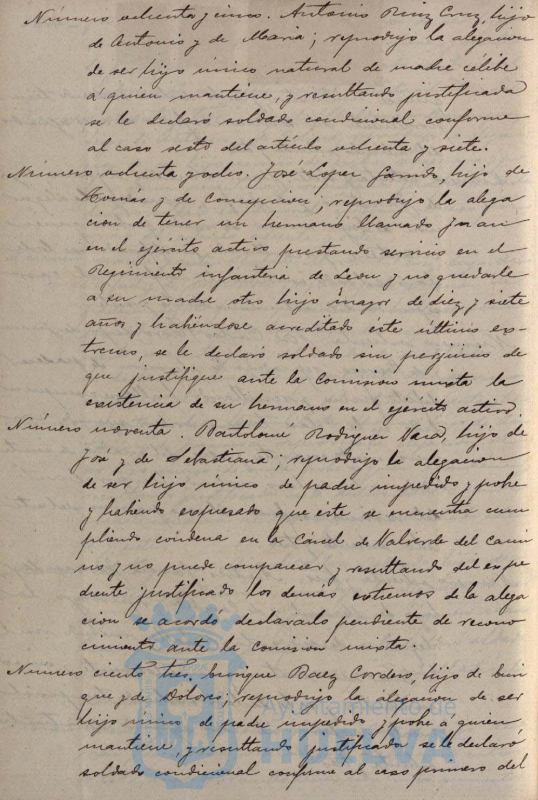 Número ochenta y cinco. Antonio Ruiz Cruz, hijo
de Antonio y de Maria; reprodujo la alegacion
de ser hijo único natural de madre célibe
á quien mantiene, y resultando justificada
se le declaró soldado condicional conforme
al caso sesto del artículo ochenta y siete.
Número ochenta y ocho. José Lopez Garrido, hijo de
Tomás y de Concepcion; reprodujo la alega
cion de tener un hermano llamado Juan
en el ejército activo prestando servicio en el
Regimiento infanteria de Leon y no quedarle
á su madre otro hijo mayor de diez y siete
años y habiéndose acreditado éste último es-
tremo, se le declaró soldado sin perjuicio de
que justifique ante la Comision mixta la
existencia de su hermano en el ejército activo.
Número noventa. Bartolomé Rodriguez Vara, hijo de
José y de Sebastiana; reprodujo la alegacion
de ser hijo único de padre impedido y pobre
y habiendo expresado que éste se encuentra cum
pliendo condena en la Cárcel de Valverde del Cami
no y no puede comparecer y resultando del espe
diente justificado los demás estremos de la alega
cion se acordó declararlo pendiente de recono
cimiento ante la Comision mixta.
Número ciento tres. Enrique Baez Cordero, hijo de Enri
que y de Dolores; reprodujo la alegacion de ser
hijo único de padre impedido y pobre á quien
mantiene, y resultando justificada se le declaró
soldado condicional conforme al caso primero del
Ayuntamiento de
HUELVA